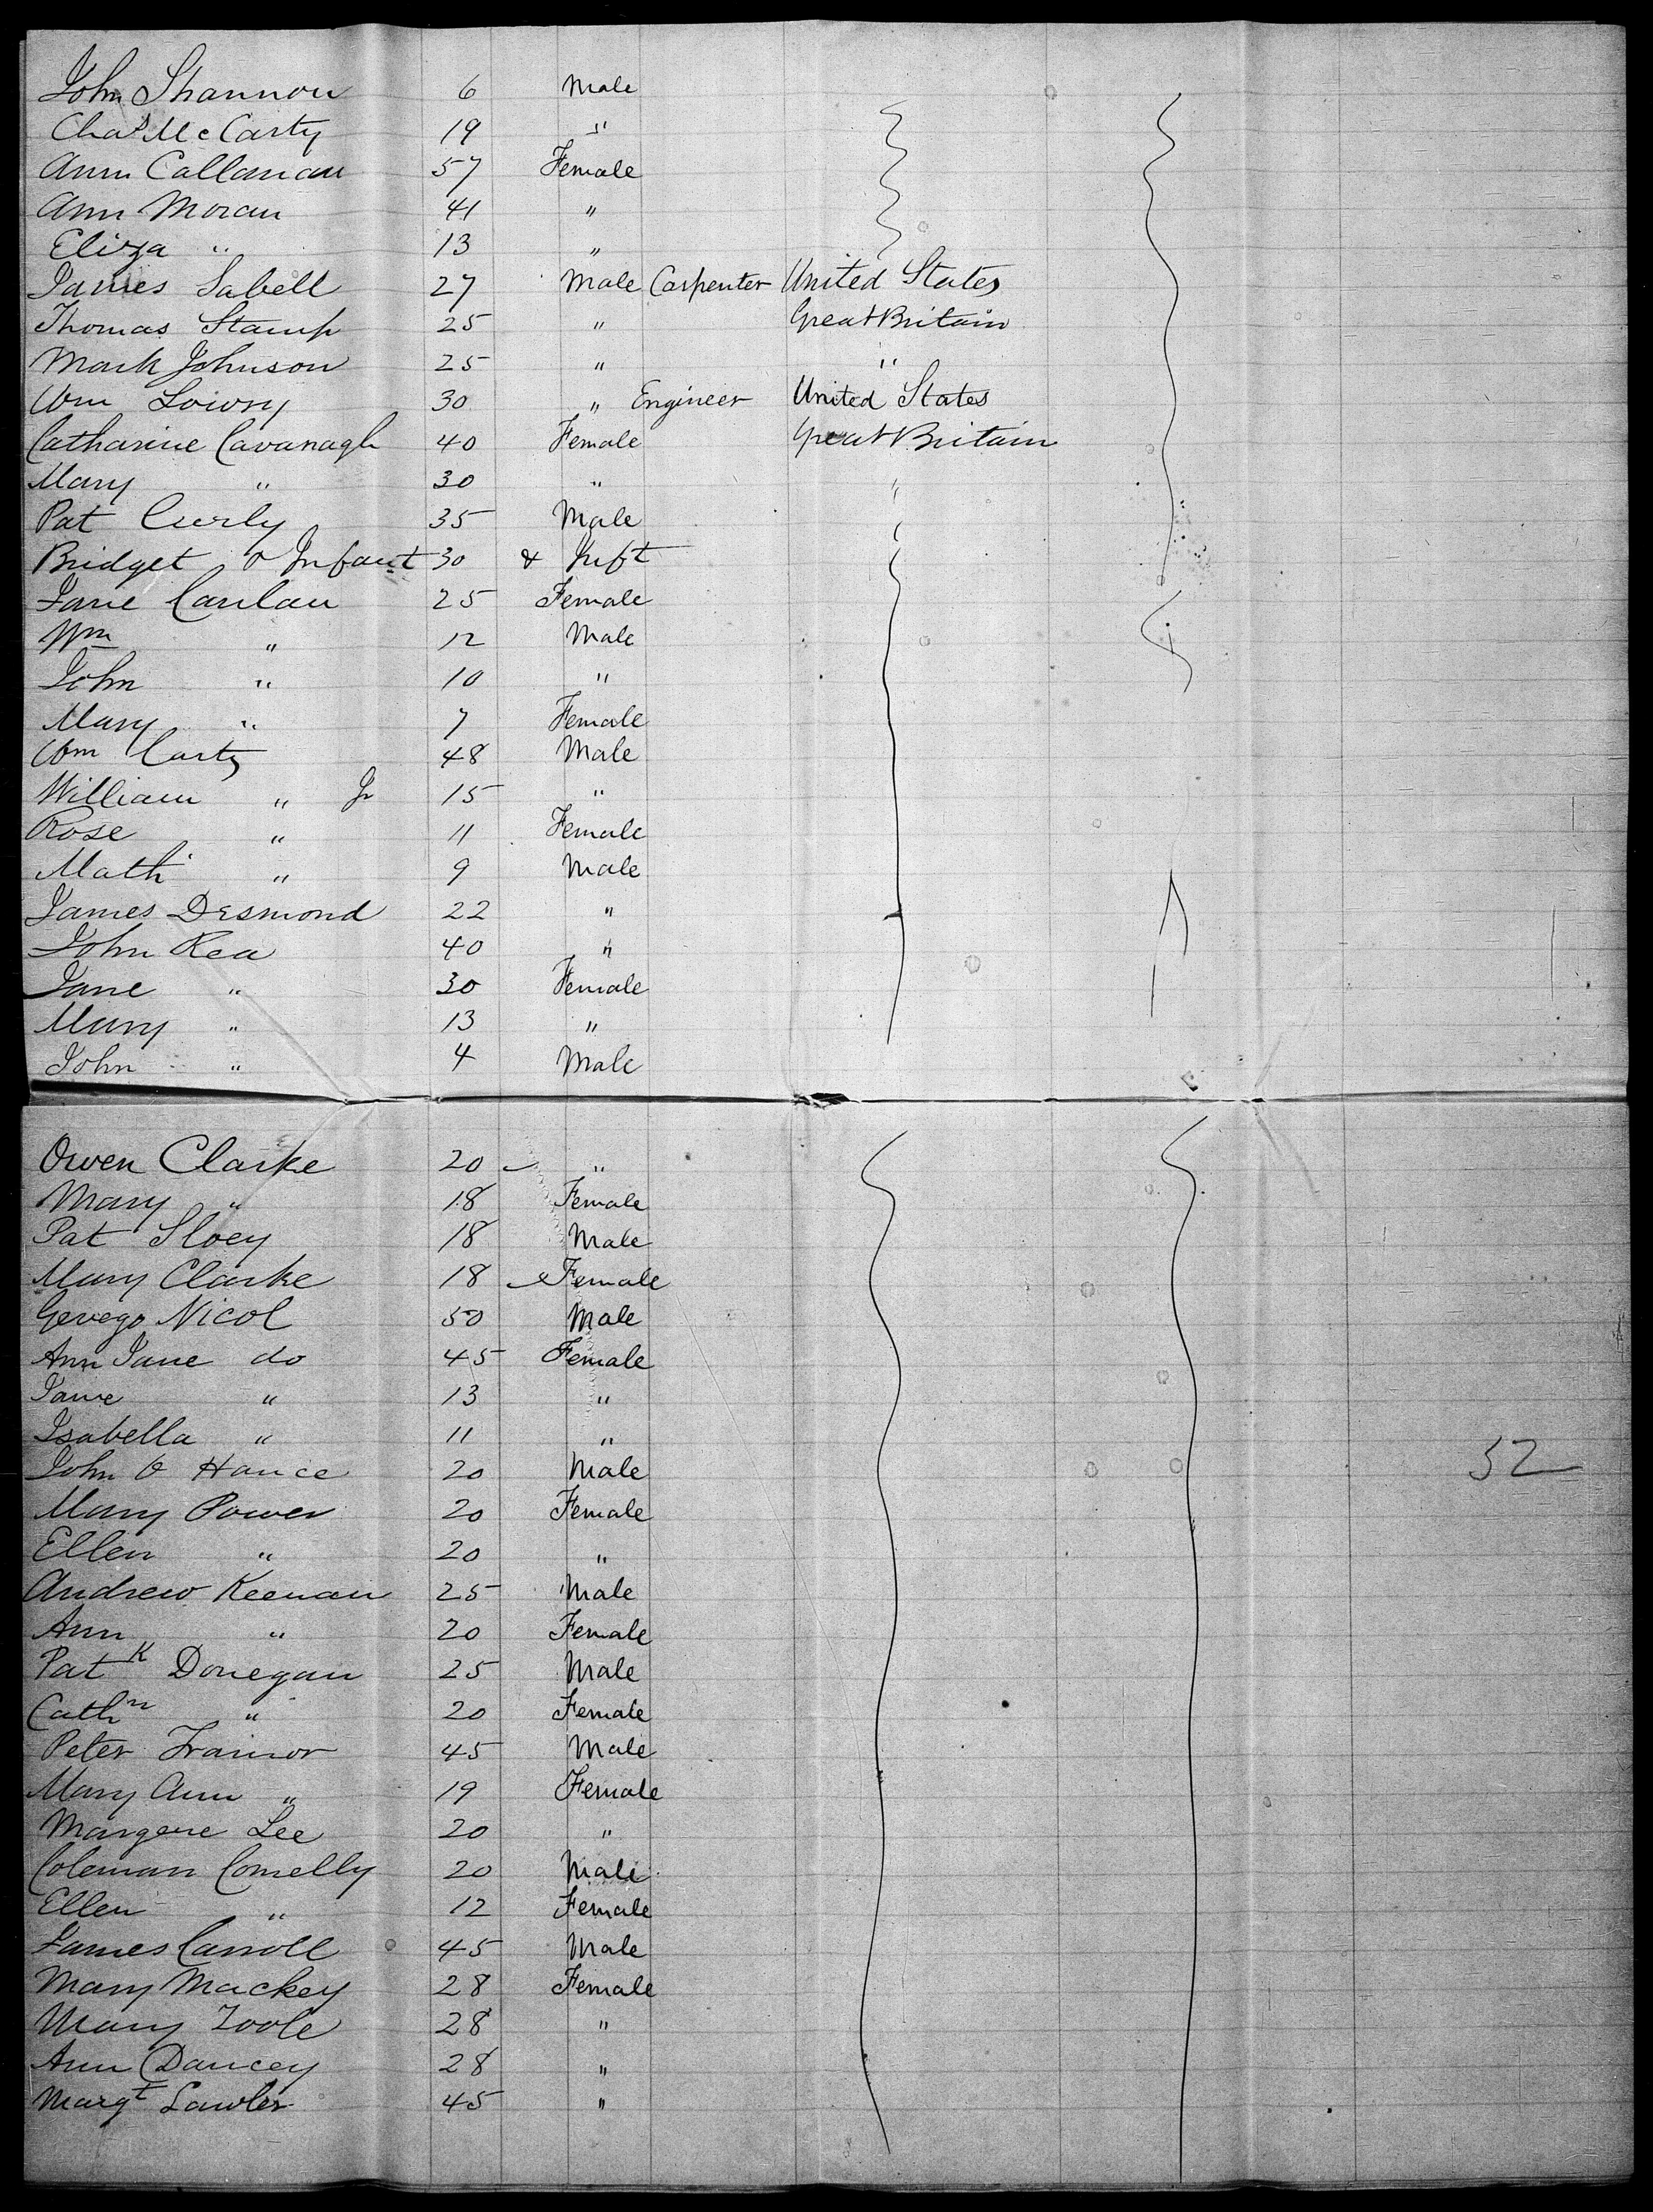 John Shannon 6 Male
Chas McCarty 19 "
Ann Callanan 57 Female
Ann Moran 41 "
Eliza " 13 "
James Sabell 27 Male Carpenter United States
Thomas Stamp 25 " Great Britain
Mark Johnson 25 " "
Wm Lowry 30 " Engineer United States
Catharine Cavanagh 40 Female Great Britain
Mary " 30 " "
Pat Curly 35 Male
Bridget & Infant 30 & Inft
Jane Canlan 25 Female
Wm " 12 Male
John " 10 "
Mary " 7 Female
Wm Carty 48 Male
William " Jr 15 "
Rose " 11 Female
Math " 9 Male
James Desmond 22 "
John Rea 40 "
Jane " 30 Female
Mary " 13 "
John " 4 Male
Owen Clarke 20 "
Mary " 18 Female
Pat Sloey 18 Male
Mary Clarke 18 Female
Nicol 50 Male
Ann Jane do 45 Female
Jane " 13 "
Isabella " 11 "
John O Hance 20 Male
52
Mary Power 20 Female
Ellen " 20 "
Andrew Keenan 25 Male
Ann " 20 Female
Patk Donegan 25 Male
Cathn " 20 Female
Peter Trainor 45 Male
Mary Ann " 19 Female
Lee 20 "
Coleman Conelly 20 Male
Ellen " 12 Female
James Carroll 45 Male
Mary Mackey 28 Female
Mary Toole 28 "
Ann Dancey 28 "
Margt Lawler 45 "